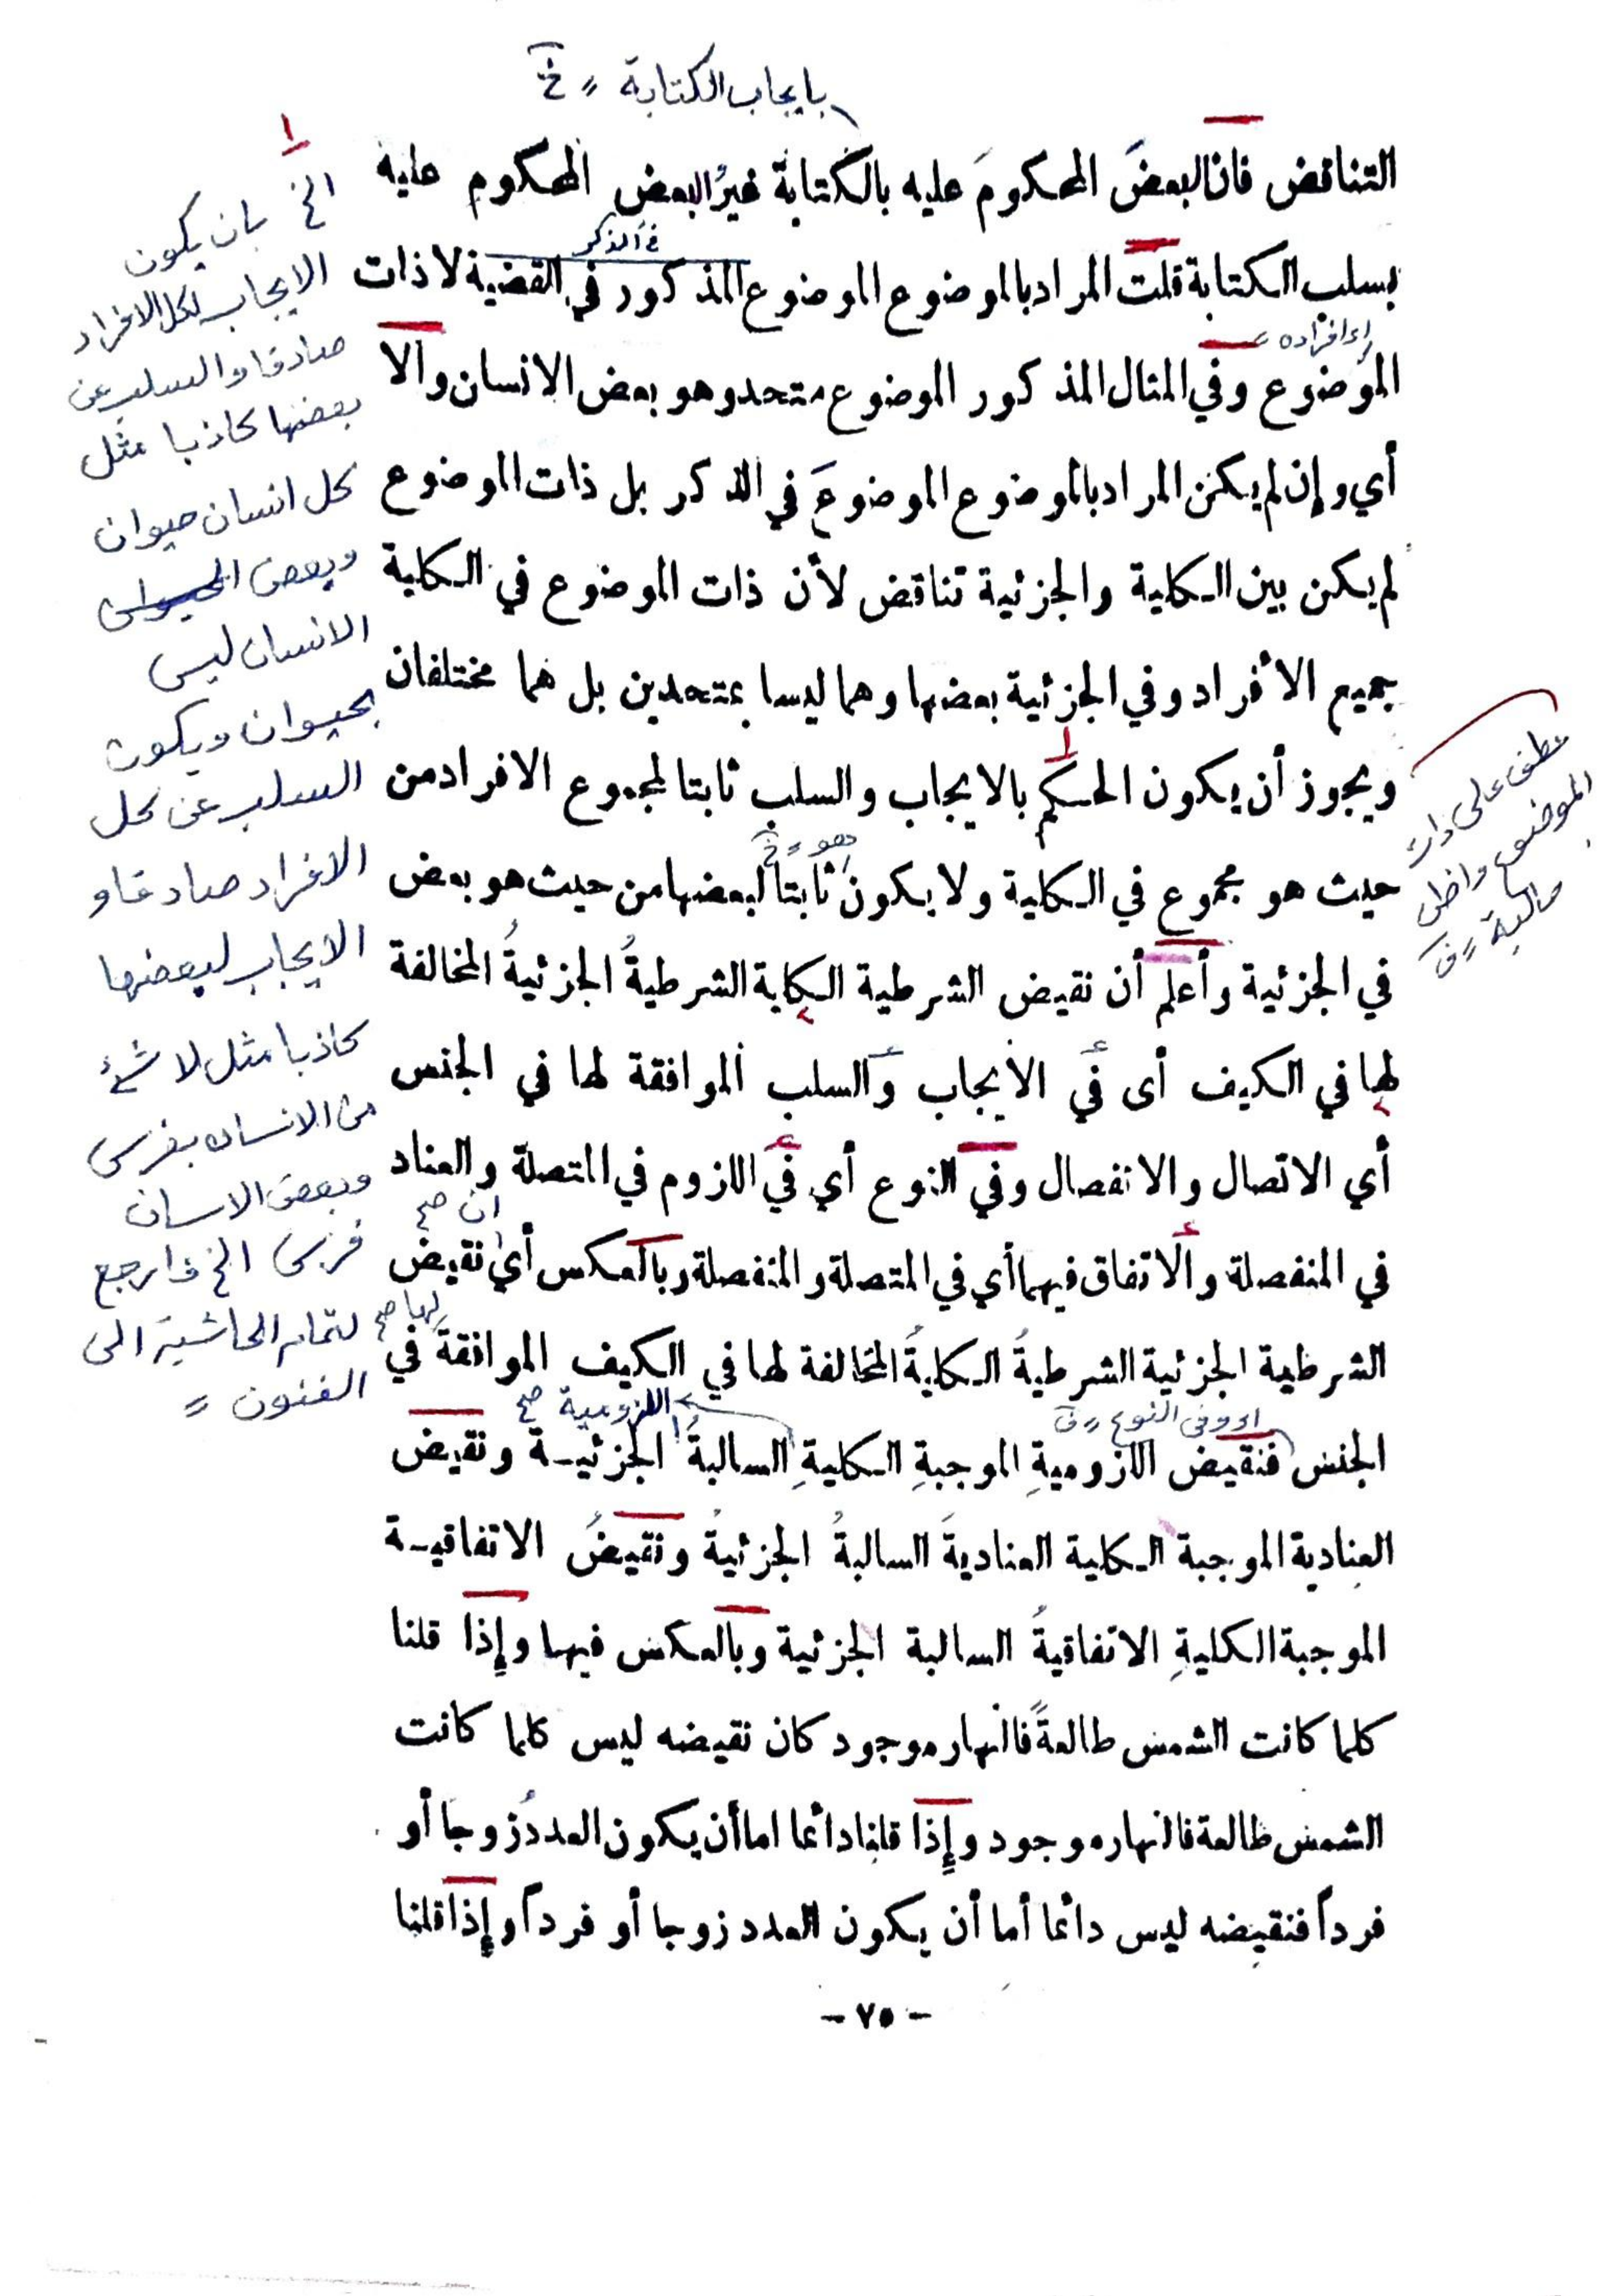 بايجاب الكتابة
التناقض فان البعضَ المحكومَ عليه بالكتابة غيرُ البعض المحكوم عليه
في الذكر
بسلب الكتابة قلت المراد بالموضوع الموضوع المذكور في القضية لا ذات
اى افراده
الموضوع وفي المثال المذكور الموضوع متحد وهو بعض الانسان والا
أي وإن لم يكن المراد بالموضوع الموضوعَ في الذكر بل ذات الموضوع
لم يكن بين الكلية والجزئية تناقض لأن ذات الموضوع في الكلية
جميع الأفراد وفي الجزئية بعضها وهما ليسا بمتحدين بل هما مختلفان
ويجوز أن يكون الحكم بالايجاب والسلب ثابتا لمجموع الافراد من
هو
حيث هو مجموع في الكلية ولا يكون ثابتاً لبعضها من حيث هو بعض
في الجزئية وأعلم أن نقيض الشرطية الكلية الشرطيةُ الجزئيةُ المخالفة
لها في الكيف أى في الايجاب والسلب الموافقة لها في الجنس
أي الاتصال والانفصال وفي النوع أي في اللزوم في المتصلة والعناد
ان صح
في المنفصلة والاتفاق فيهما أي في المتصلة والمنفصلة وبالعكس أي نقيضُ
لها صح
الشرطية الجزئية الشرطيةُ الكليةُ المخالفة لها في الكيف الموافقةَ في
اى وفى النوع
اللزومية صح
الجنس فنقيض اللزوميةِ الموجبةِ الكليةِ السالبةُ الجزئيـة ونقيض
العنادية الموجبة الكلية العناديةَ السالبةُ الجزئيةُ ونقيضُ الاتفاقيـة
الموجبة الكليةِ الاتفاقيةُ السالبة الجزئية وبالعكس فيها وإذا قلنا
كلما كانت الشمس طالعةً فالنهار موجود كان نقيضه ليس كلما كانت
الشمس طالعة فالنهار موجود وإذا قلنا دائما اما أن يكون العددُ زوجا أو
فرداً فنقيضه ليس دائما أما أن يكون العدد زوجا أو فرداً وإذا قلنا
- ٧٥ -
١
الخ بان يكون
الايجاب لكل الافراد
صادقا والسلب عن
بعضها كاذبا مثل
كل انسان حيوان
وبعض الحيوان
الانسان ليس
بحيوان ويكون
السلب عن كل
الافراد صادقا و
الايجاب لبعضها
كاذبا مثل لا شئ
من الانسان بفرس
وبعض الانسان
فرس الخ فارجع
لتمام الحاشية الى
الفنون
عطف على ذات
الموضوع